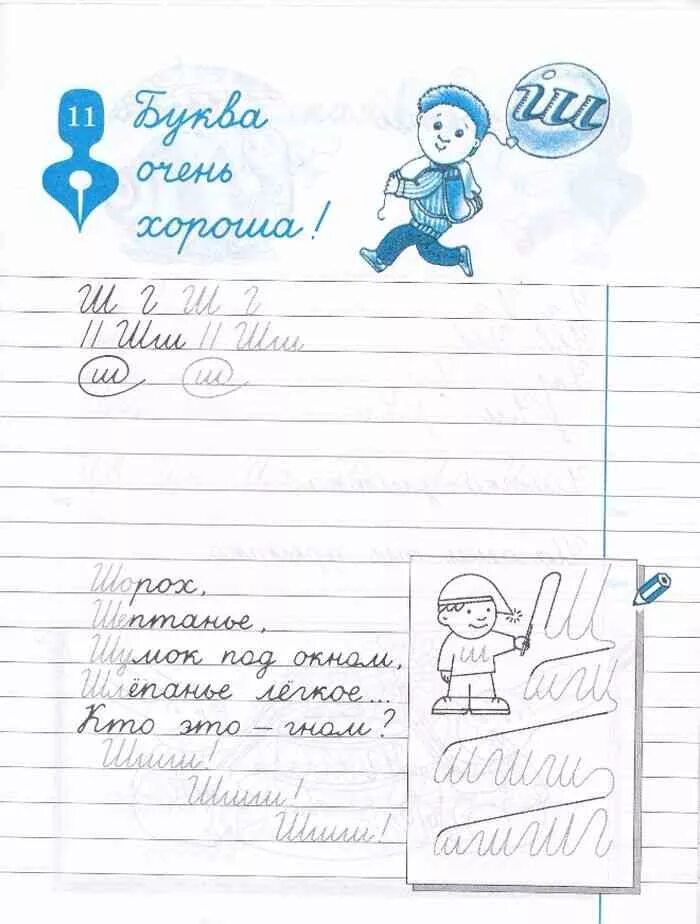 11
Буква
очень
хороша!
ш
Ш г Ш г
|| Шш || Шш
ш ш
Шорох,
Шептанье,
Шумок под окном,
Шлёпанье лёгкое...
Кто это – гном?
Шшш!
Шшш!
Шшш!
ш